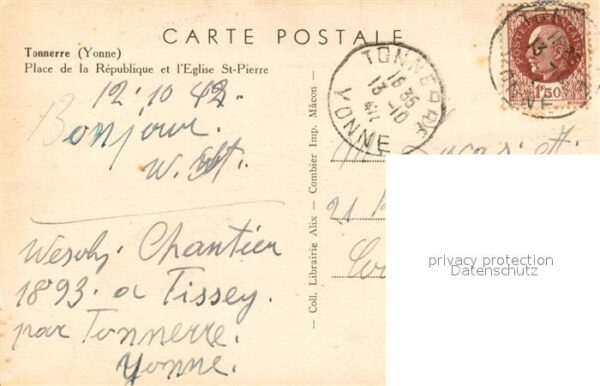 CARTE POSTALE
Tonnerre (Yonne)
Place de la République et l'Eglise St-Pierre
12.10 42.
Bonjour.
W.
Wesoly. Chantier
1893. a Tissey.
par Tonnerre.
Yonne.
— Coll. Librairie Alix - Combier Imp. Mâcon —
TONNERRE
16 35
13 -10
YONNE
POSTES FRANÇAISES
1F50
21
privacy protection
Datenschutz